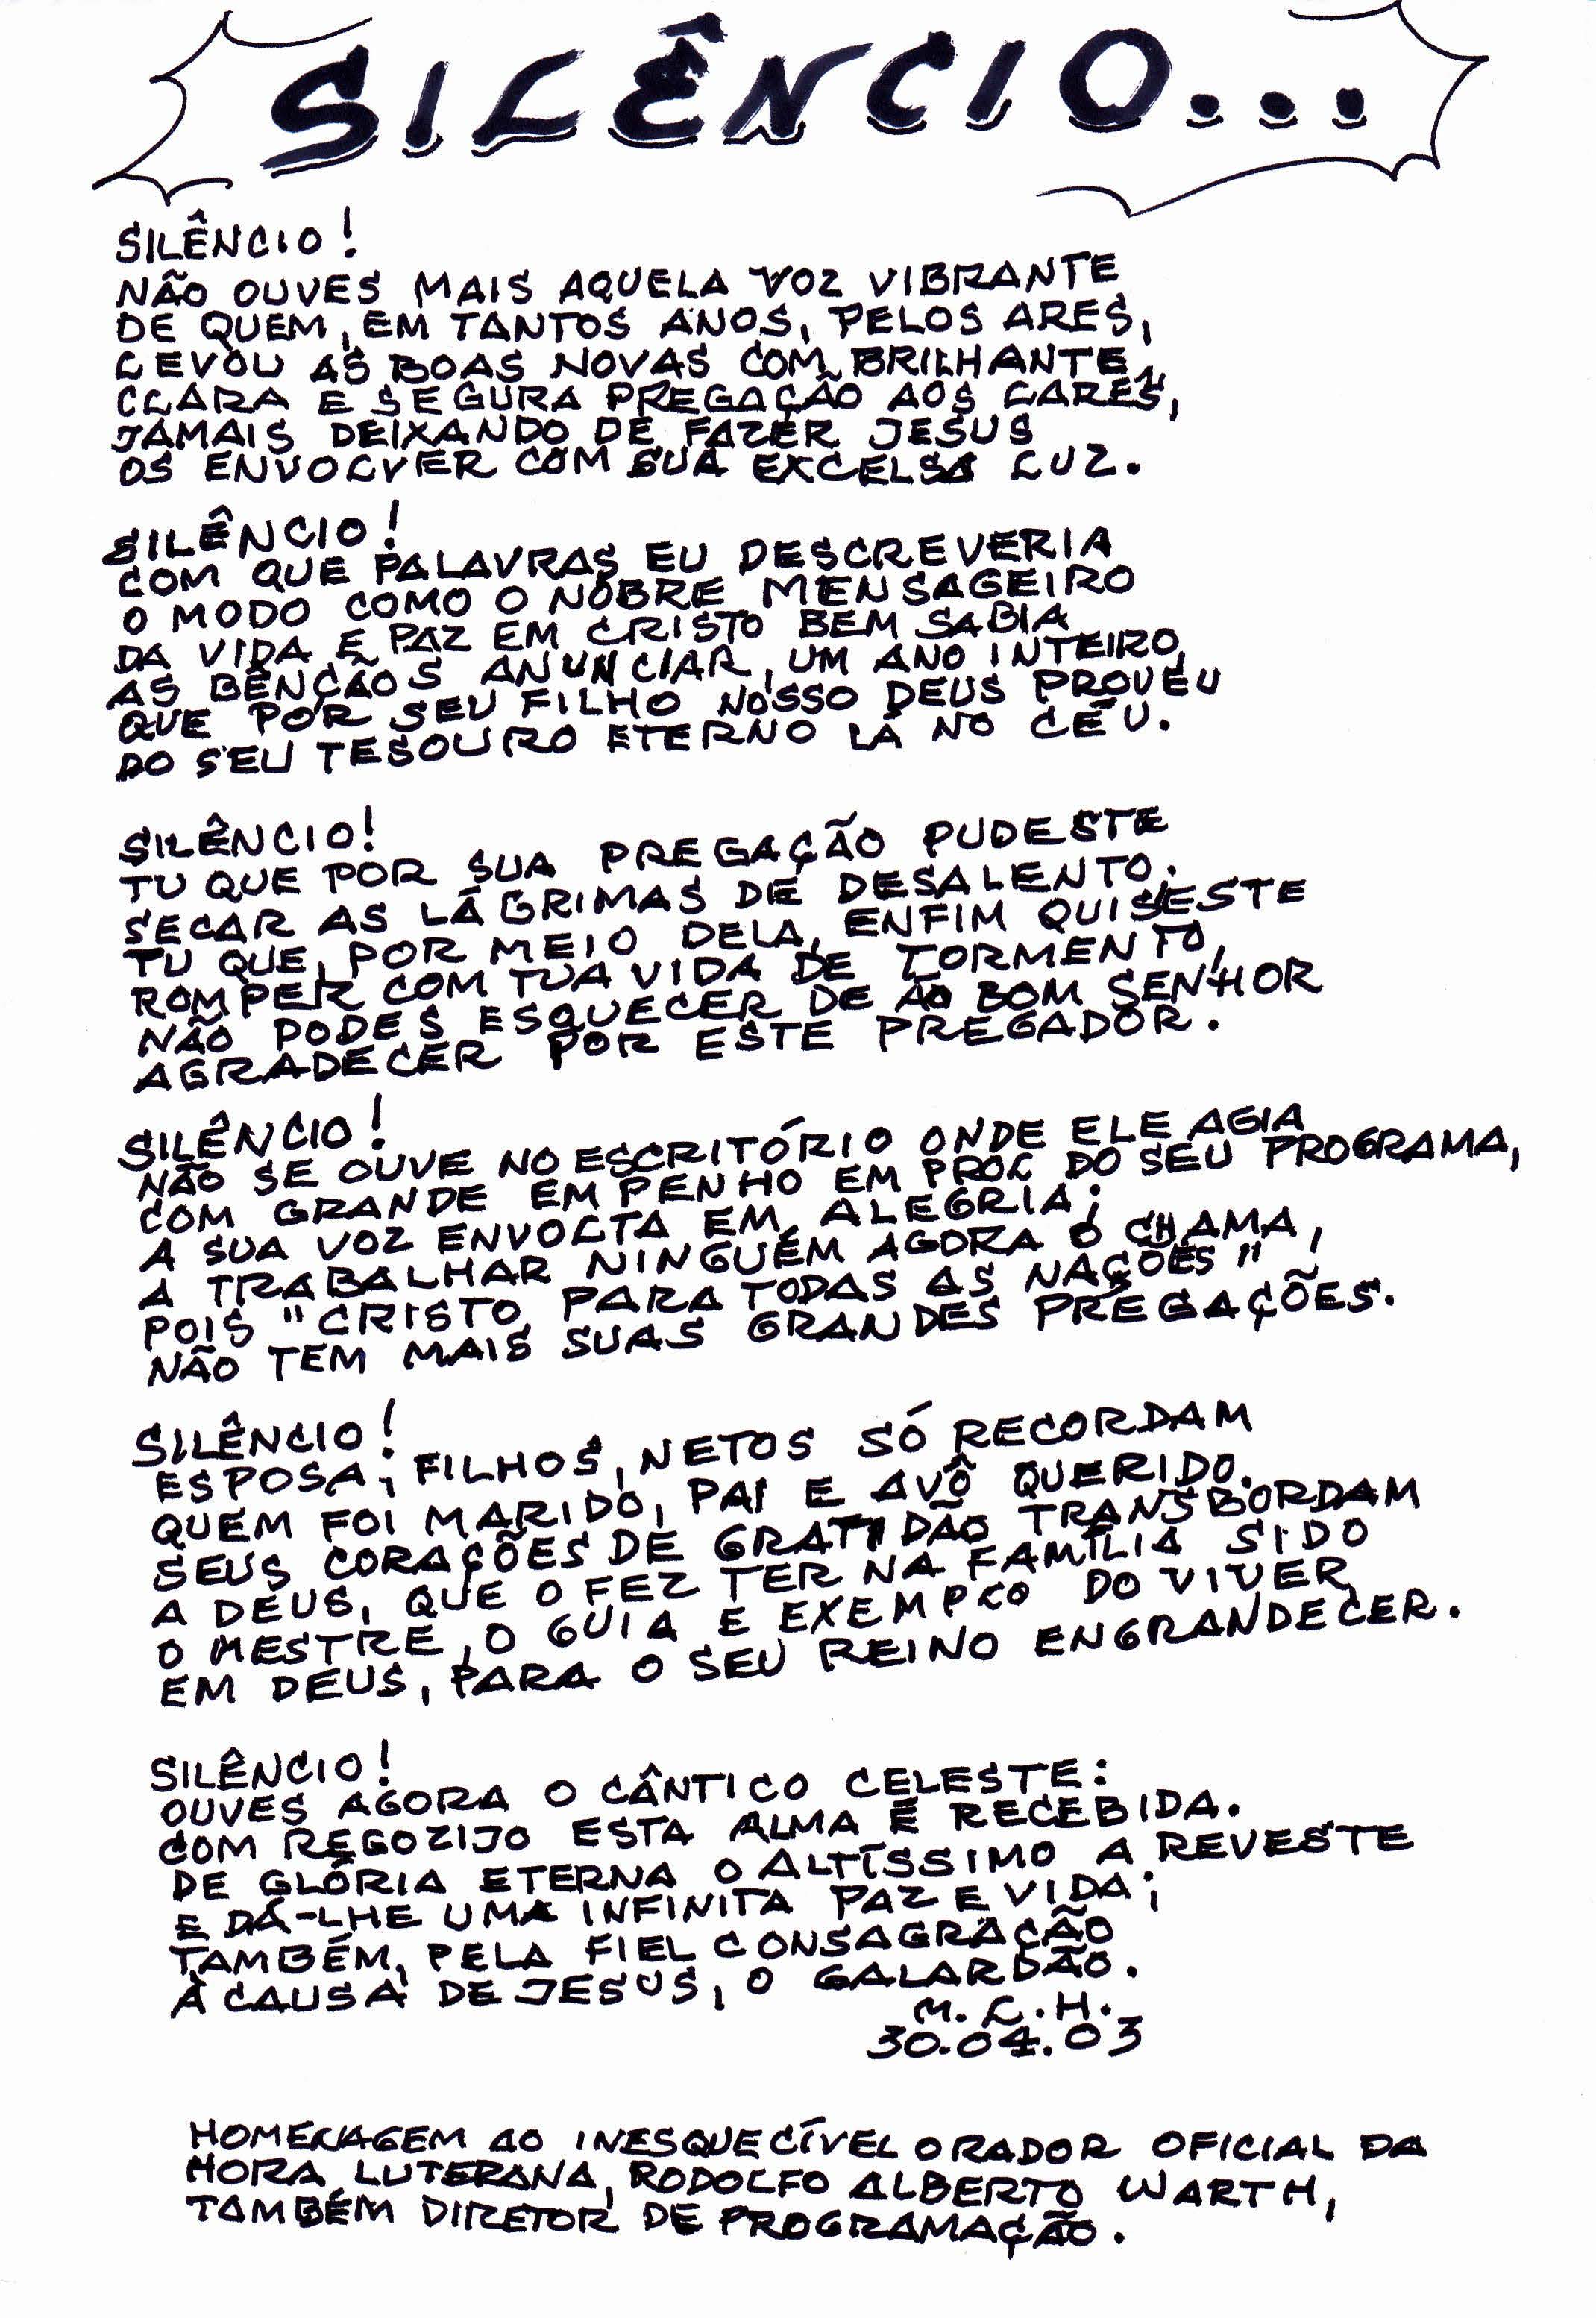 SILÊNCIO...
SILÊNCIO!
NÃO OUVES MAIS AQUELA VOZ VIBRANTE
DE QUEM, EM TANTOS ANOS, PELOS ARES,
LEVOU AS BOAS NOVAS COM BRILHANTE,
CLARA E SEGURA PREGAÇÃO AOS LARES,
JAMAIS DEIXANDO DE FAZER JESUS
OS ENVOLVER COM SUA EXCELSA LUZ.
SILÊNCIO!
COM QUE PALAVRAS EU DESCREVERIA
O MODO COMO O NOBRE MENSAGEIRO
DA VIDA E PAZ EM CRISTO BEM SABIA
AS BÊNÇÃOS ANUNCIAR, UM ANO INTEIRO,
QUE POR SEU FILHO NOSSO DEUS PROVEU
DO SEU TESOURO ETERNO LÁ NO CÉU.
SILÊNCIO!
TU QUE POR SUA PREGAÇÃO PUDESTE
SECAR AS LÁGRIMAS DE DESALENTO;
TU QUE, POR MEIO DELA, ENFIM QUISESTE
ROMPER COM TUA VIDA DE TORMENTO,
NÃO PODES ESQUECER DE AO BOM SENHOR
AGRADECER POR ESTE PREGADOR.
SILÊNCIO!
NÃO SE OUVE NO ESCRITÓRIO ONDE ELE AGIA
COM GRANDE EMPENHO EM PROL DO SEU PROGRAMA,
A SUA VOZ ENVOLTA EM ALEGRIA;
A TRABALHAR NINGUÉM AGORA O CHAMA,
POIS "CRISTO PARA TODAS AS NAÇÕES"
NÃO TEM MAIS SUAS GRANDES PREGAÇÕES.
SILÊNCIO!
ESPOSA, FILHOS, NETOS SÓ RECORDAM
QUEM FOI MARIDO, PAI E AVÔ QUERIDO.
SEUS CORAÇÕES DE GRATIDÃO TRANSBORDAM
A DEUS, QUE O FEZ TER NA FAMÍLIA SIDO
O MESTRE, O GUIA E EXEMPLO DO VIVER
EM DEUS, PARA O SEU REINO ENGRANDECER.
SILÊNCIO!
OUVES AGORA O CÂNTICO CELESTE:
COM REGOZIJO ESTA ALMA É RECEBIDA.
DE GLÓRIA ETERNA O ALTÍSSIMO A REVESTE
E DÁ-LHE UMA INFINITA PAZ E VIDA;
TAMBÉM, PELA FIEL CONSAGRAÇÃO
À CAUSA DE JESUS, O GALARDÃO.
M.L.H.
30.04.03
HOMENAGEM AO INESQUECÍVEL ORADOR OFICIAL DA
HORA LUTERANA, RODOLFO ALBERTO WARTH,
TAMBÉM DIRETOR DE PROGRAMAÇÃO.